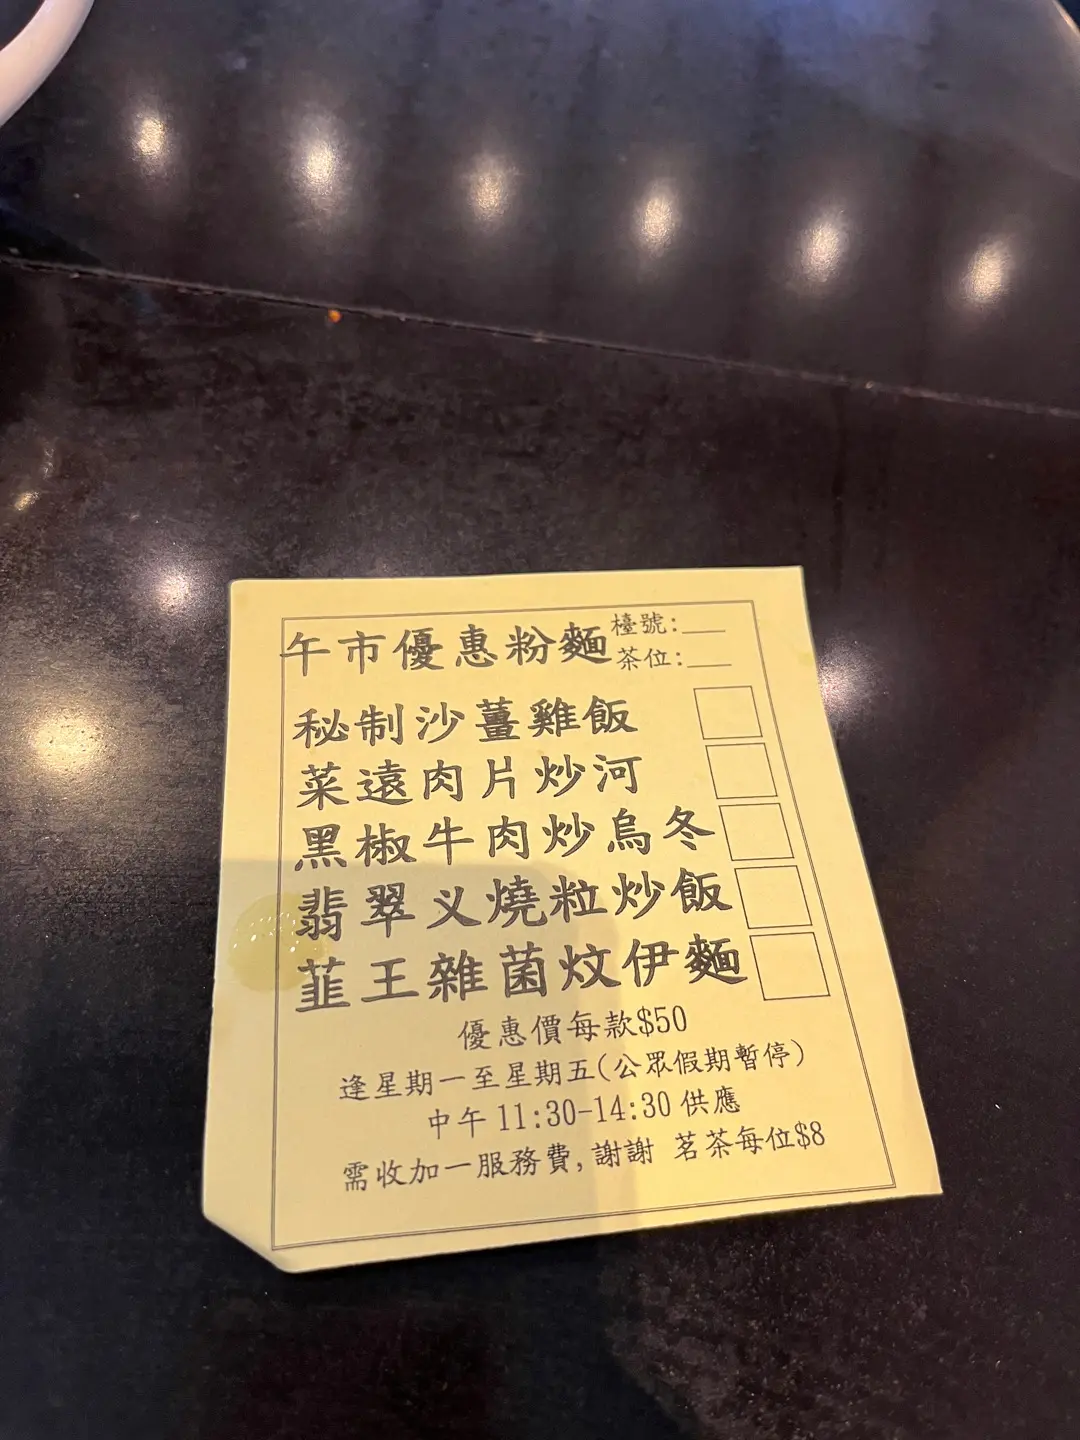 午市優惠粉麵
檯號:__
茶位:__
秘制沙薑雞飯
菜遠肉片炒河
黑椒牛肉炒烏冬
翡翠义燒粒炒飯
韮王雜菌炆伊麵
優惠價每款$50
逢星期一至星期五(公眾假期暫停)
中午11:30-14:30供應
需收加一服務費,謝謝 茗茶每位$8